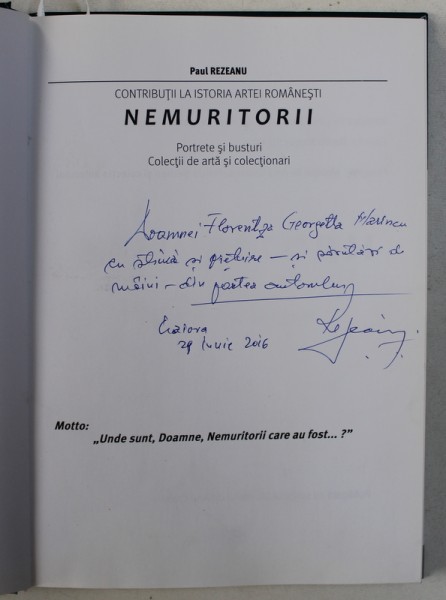 Paul REZEANU
CONTRIBUŢII LA ISTORIA ARTEI ROMÂNEŞTI
NEMURITORII
Portrete şi busturi
Colecţii de artă şi colecţionari
Doamnei Florentza Georgetta Marincu
cu stimă şi preţuire – şi sărutări de
mâini – din partea autorului
Craiova
29 Iunie 2016
Motto:
„Unde sunt, Doamne, Nemuritorii care au fost... ?”